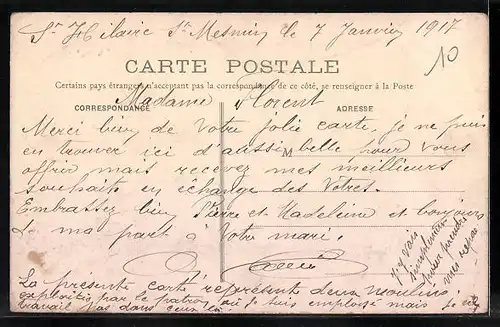 St Hilaire St Mesmin le 7 Janvier 1917
10
CARTE POSTALE
Certains pays étrangers n'acceptant pas la correspondance de ce côté, se renseigner à la Poste
CORRESPONDANCE
ADRESSE
Madame Florent
Merci bien de Votre jolie carte, je ne puis
en trouver ici d'aussi belle pour vous
M
offrir mais recevez mes meilleurs
souhaits en échange des Vôtres.
Embrassez bien Pierre et Madeleine et bonjours
de ma part à Votre mari.
La présente carte représente deux moulins
exploités par le patron où je suis employé mais je ne
travail pas dans ceux-là.
j'y vais
simplement
pour prendre
mes repas